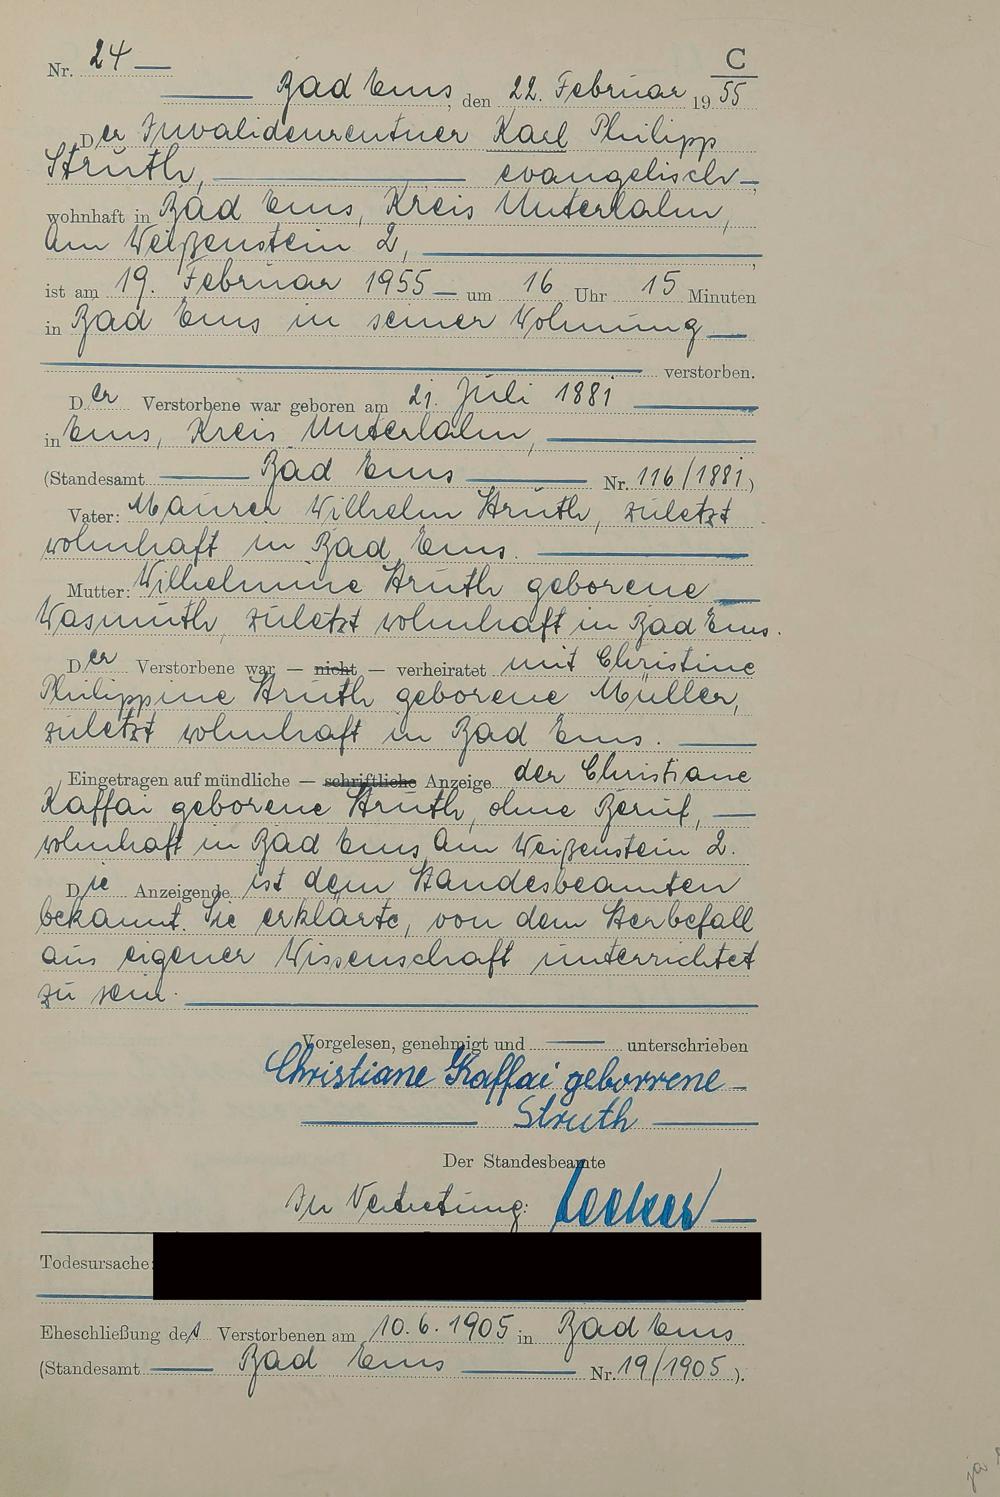 C
Nr. 24
Bad Ems, den 22. Februar 1955
Der Invalidenrentner Karl Philipp
Struth, evangelisch,
wohnhaft in Bad Ems, Kreis Unterlahn,
Am Weißenstein 2,
ist am 19. Februar 1955 um 16 Uhr 15 Minuten
in Bad Ems in seiner Wohnung
verstorben.
Der Verstorbene war geboren am 21. Juli 1881
in Ems, Kreis Unterlahn,
(Standesamt Bad Ems Nr. 116/1881)
Vater: Maurer Wilhelm Struth, zuletzt
wohnhaft in Bad Ems.
Mutter: Wilhelmine Struth geborene
Wasmuth, zuletzt wohnhaft in Bad Ems.
Der Verstorbene war — nicht — verheiratet mit Christine
Philippine Struth geborene Müller,
zuletzt wohnhaft in Bad Ems.
Eingetragen auf mündliche — schriftliche Anzeige der Christiane
Kaffai geborene Struth, ohne Beruf,
wohnhaft in Bad Ems, Am Weißenstein 2.
Die Anzeigende ist dem Standesbeamten
bekannt. Sie erklärte, von dem Sterbefall
aus eigener Wissenschaft unterrichtet
zu sein.
Vorgelesen, genehmigt und unterschrieben
Christiane Kaffai geborrene
Struth
Der Standesbeamte
In Vertretung:
Todesursache:
Eheschließung des Verstorbenen am 10.6.1905 in Bad Ems
(Standesamt Bad Ems Nr. 19/1905).
ja